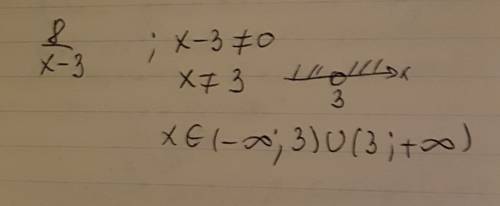 8/(x-3) ; x-3≠0
x≠3
x
3
x∈(-∞;3)∪(3;+∞)